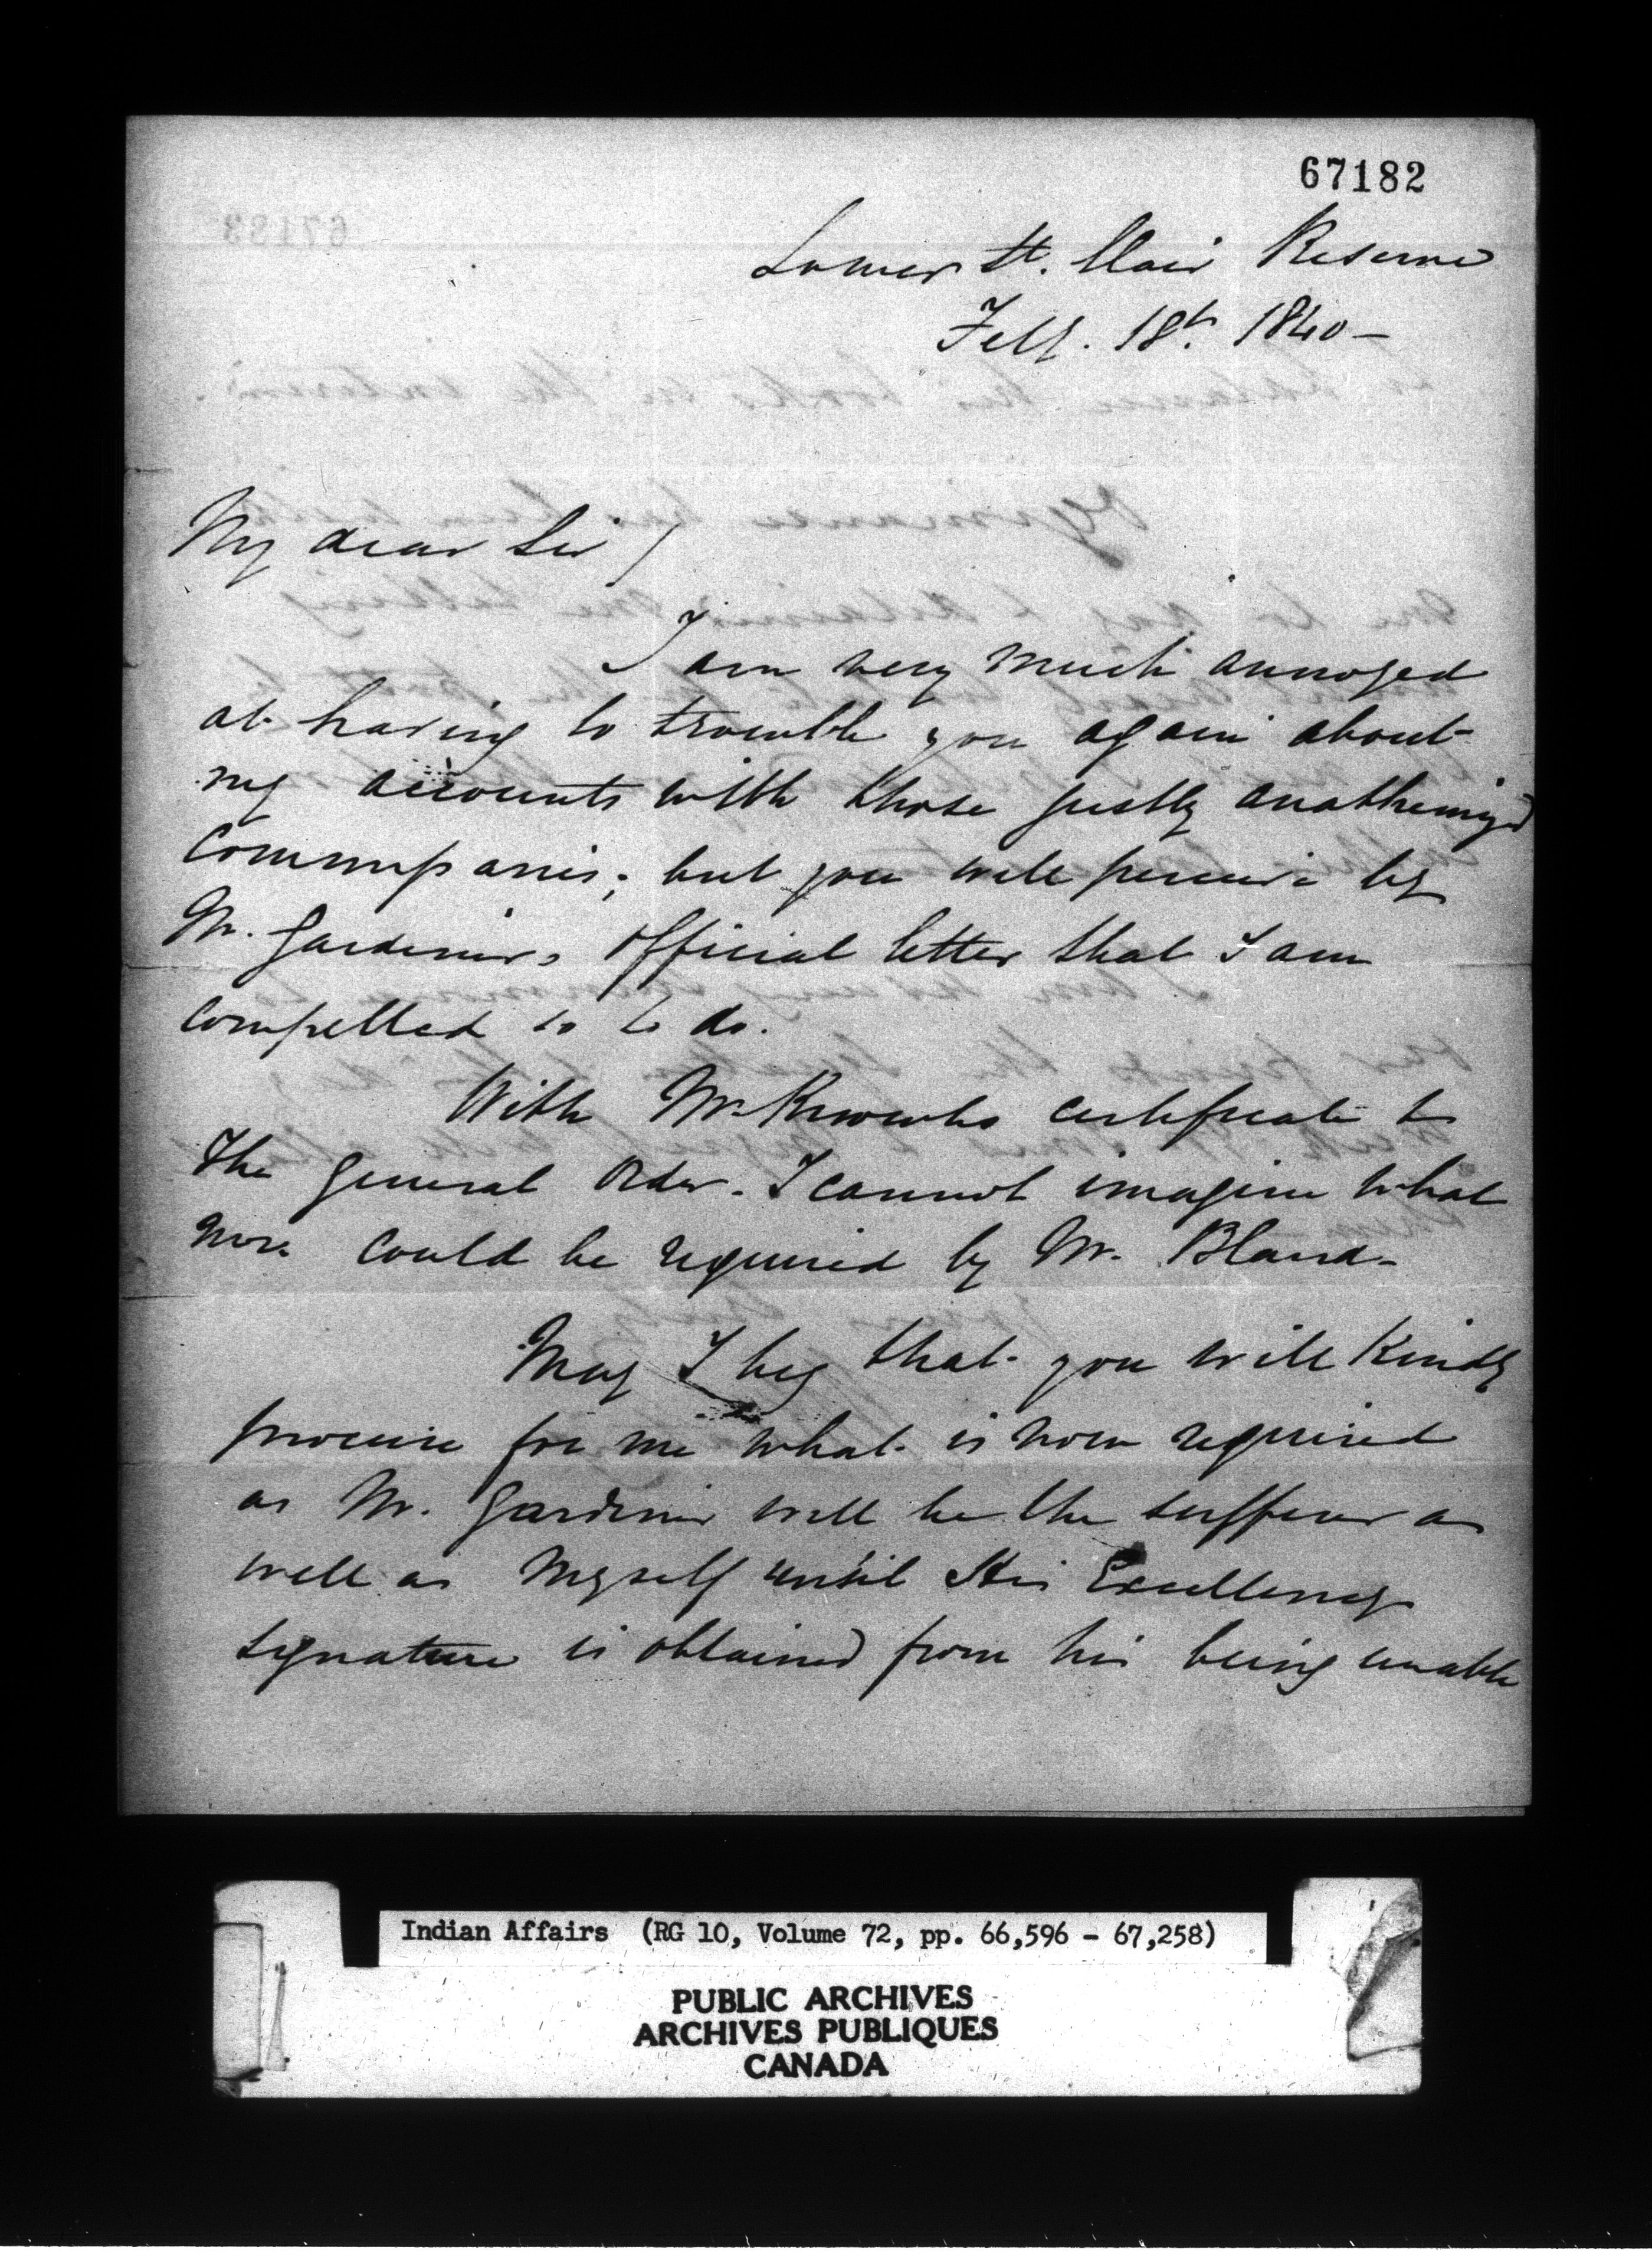 67182
Lower St. Clair Reserve
Feby. 18th. 1840 —
My dear Sir /
I am very much annoyed
at having to trouble you again about
my accounts with those justly anathemized
Commissaries; but you will perceive by
Mr. Gardiners official letter that I am
compelled so to do.
With Mr. certificate to
the General Order. I cannot imagine what
more could be required by Mr. Bland -
May I beg that you will kindly
procure for me what is now required
as Mr. Gardiner will be the sufferer as
well as myself until His Excellency
signature is obtained from his being unable
Indian Affairs (RG 10, Volume 72, pp. 66,596 - 67,258)
PUBLIC ARCHIVES
ARCHIVES PUBLIQUES
CANADA